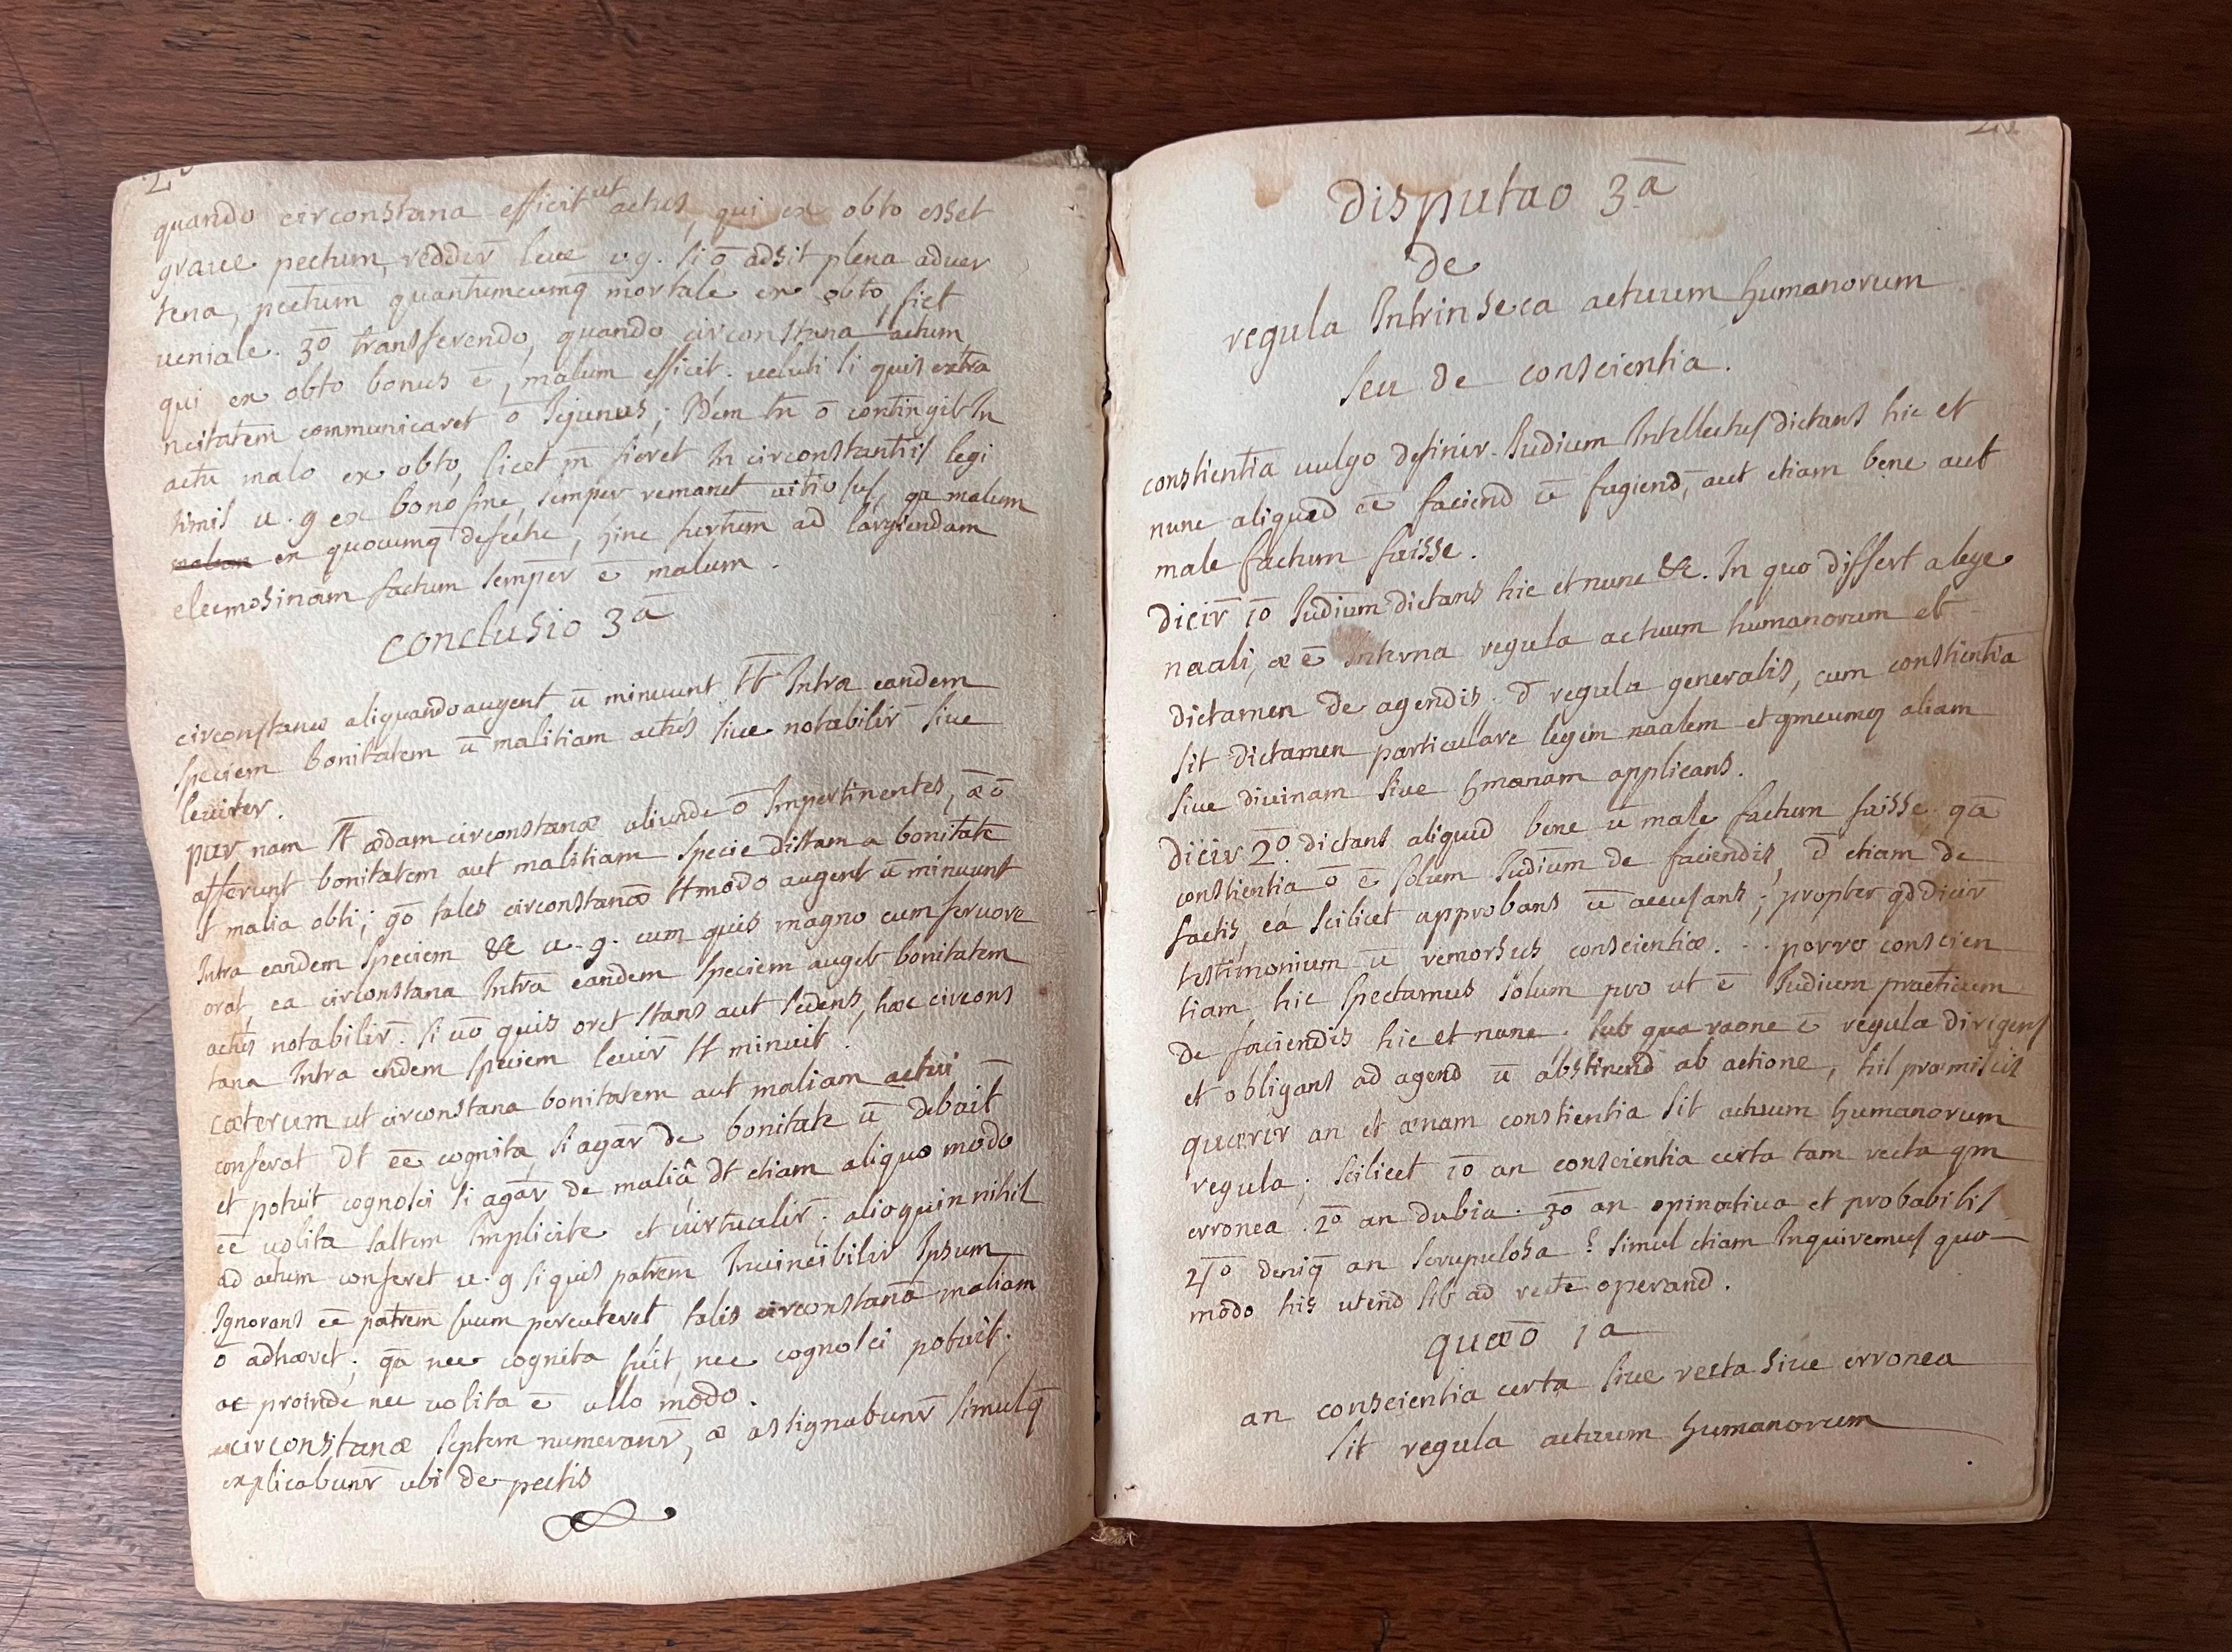 quando circonstana efficit ut actus, qui ex obto esset
graue pectum, redder̄ leue v.g. si ō adsit plena aduer
tena, pectum quantumcumq̄ mortale ex obto, fiet
ueniale. 3º transferendo, quando circonstana actum,
qui ex obto bonus ē, malum efficit. ueluti si quis extra
ncitatem communicaret ō Iejunus; Idem tn̄ ō contingit In
actu malo ex obto, licet m̄ fieret In circonstantiis legi
timis u.g ex bono fine, semper remanet uitiosus, qa malum
malum ex quocumq̄ defectu, hinc furtum ad largiendam
eleemosinam factum semper ē malum.
conclusio 3ª
circonstanæ aliquando augent ū minuunt tt̄ Intra eandem
speciem bonitatem ū malitiam actus siue notabilir̄ siue
leuiter.
pur nam tt̄ ædam circonstanæ aliunde ō Impertinentes, æ ō
afferunt bonitatem aut malitiam specie distam a bonitate
et malia obti; gō tales circonstanæ tt modo augent ū minuunt
Intra eandem speciem &c u.g. cum quis magno cum feruore
orat, ea circonstana Intra eandem speciem auget bonitatem
actus notabilir̄. si uō quis oret stans aut sedens, hæc circons
tana Intra endem speciem leuir̄ tt minuit.
cæterum ut circonstana bonitatem aut maliam actui
conferat dt ēe cognita, si agar̄ de bonitate ū debait
et potuit cognosci si agar̄ de maliâ dt etiam aliquo modo
ēe uolita saltem Implicite et uirtualir̄. alioquin nihil
ad actum conferet u.g si quis patrem Inuincibilir Ipsum
Ignorans ēe patrem suum percuteret talis circonstana maliam
ō adhæret; qā nec cognita fuit, nec cognosci potuit;
ac proinde nec uolita ē ullo modo.
circonstanæ septem numeranr̄, æ assignabunr̄ simulq̄
explicabunr̄ ubi de pectis
disputao 3ª
de
regula Intrinseca actuum humanorum
seu de conscientia.
constientia uulgo definir. Iudium Intellectus dictans hic et
nunc aliquid ēe faciend ū fugiend, aut etiam bene aut
male factum fuisse.
dicir̄ 1º Iudium dictans hic et nunc &c. In quo differt a lege
naali, æ ē Interna regula actuum humanorum et
dictamen de agendis. d̄ regula generalis, cum constientia
sit dictamen particulare legem naalem et qmcumq aliam
siue diuinam siue hmanam applicans.
dicir 2º. dictans aliquid bene ū male factum fuisse. qā
constientia ō ē solum Iudium de faciendis, d̄ etiam de
factis, ea scilicet approbans ū accusans; propter qd dicir̄
testimonium ū remorsus conscientiæ. . . porro conscien
tiam hic spectamus solum pro ut ē Iudium practicum
de faciendis hic et nunc. sub qua raone ē regula dirigens
et obligans ad agend ū abstinend ab actione, hil præmissis
quærir an et ænam constientia sit actuum humanorum
regula; scilicet 1º an conscientia certa tam recta qm
erronea. 2º an dubia. 3º an opinatiua et probabilis
4º deniq̄ an scrupulosa? simul etiam Inquiremus quo
modo his utend sit ad recte operand.
quæō 1ª
an conscientia certa siue recta siue erronea
sit regula actuum humanorum